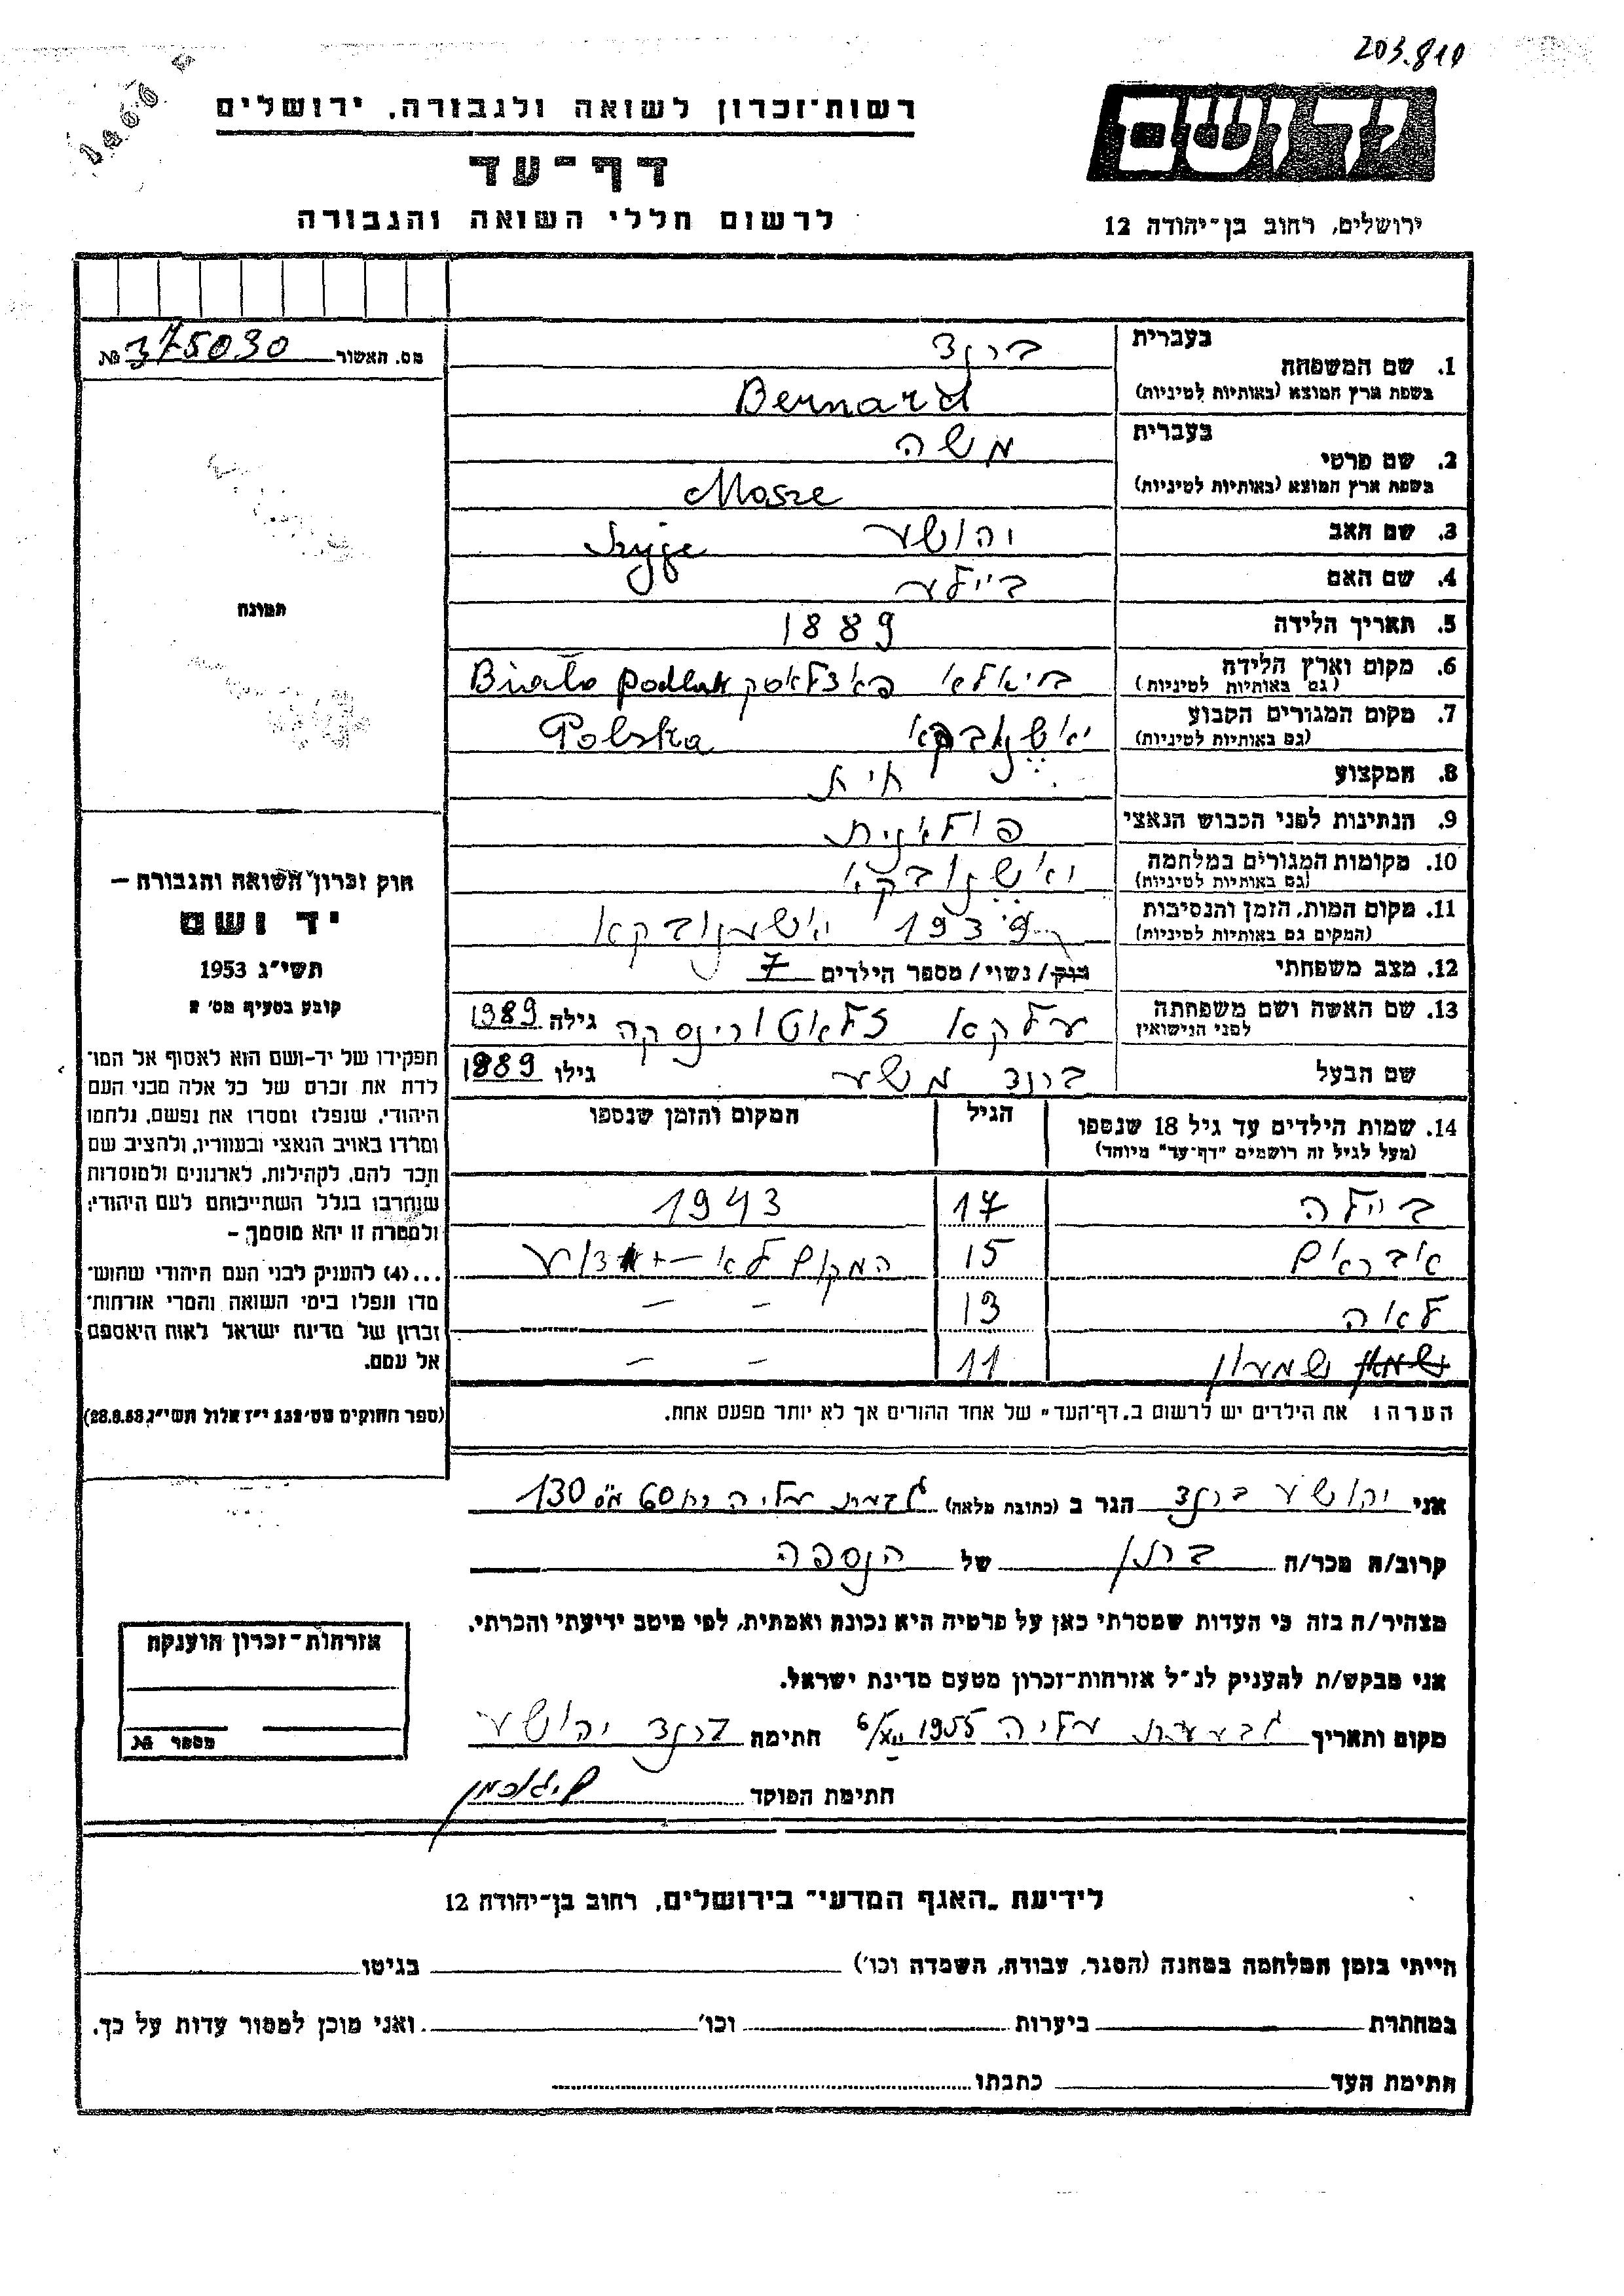 203.810
יד ושם
רשות־זכרון לשואה ולגבורה, ירושלים
דף־עד
לרשום חללי השואה והגבורה
ירושלים, רחוב בן־יהודה 12
מס. האשור № 375030
תמונה
חוק זכרון השואה והגבורה –
יד ושם
תשי״ג 1953
קובע בסעיף מס׳ 2
תפקידו של יד-ושם הוא לאסוף אל המו־
לדת את זכרם של כל אלה מבני העם
היהודי, שנפלו ומסרו את נפשם, נלחמו
ומרדו באויב הנאצי ובעוזריו, ולהציב שם
וזכר להם, לקהילות, לארגונים ולמוסדות
שנחרבו בגלל השתייכותם לעם היהודי;
ולמטרה זו יהא מוסמך –
...(4) להעניק לבני העם היהודי שהוש־
מדו ונפלו בימי השואה והמרי אזרחות־
זכרון של מדינת ישראל לאות היאספם
אל עמם.
(ספר החוקים מס׳ 132 י״ז אלול תשי״ג 28.8.53)
1. שם המשפחה בעברית ברנד
בשפת ארץ המוצא (באותיות לטיניות) Bernard
2. שם פרטי בעברית משה
בשפת ארץ המוצא (באותיות לטיניות) Mosze
3. שם האב יהושע
4. שם האם ביילע
5. תאריך הלידה 1889
6. מקום וארץ הלידה (גם באותיות לטיניות) ביאלא Biała
7. מקום המגורים הקבוע (גם באותיות לטיניות) Polska
8. המקצוע חיט
9. הנתינות לפני הכבוש הנאצי פולאנית
10. מקומות המגורים במלחמה (גם באותיות לטיניות)
11. מקום המות, הזמן והנסיבות (המקום גם באותיות לטיניות) 1939
12. מצב משפחתי רווק/נשוי/מספר הילדים 7
13. שם האשה ושם משפחתה לפני הנישואין גילה 1889
שם הבעל ברנד משע גילו 1889
14. שמות הילדים עד גיל 18 שנספו הגיל המקום והזמן שנספו
(מעל לגיל זה רושמים "דף־עד" מיוחד)
ביילה 17 1943
אבראם 15 המקום לא ידוע
לאה 13 – –
שמעון 11 – –
הערה: את הילדים יש לרשום ב„דף־העד״ של אחד ההורים אך לא יותר מפעם אחת.
אני יהושע ברנד הגר ב (כתובת מלאה) גבעת עליה 60 130
קרוב/ה מכר/ה של הנספה
מצהיר/ה בזה כי העדות שמסרתי כאן על פרטיה היא נכונה ואמתית, לפי מיטב ידיעתי והכרתי.
אני מבקש/ת להעניק לנ״ל אזרחות־זכרון מטעם מדינת ישראל.
מקום ותאריך גבעת עליה 1955 חתימה ברנד יהושע
חתימת הפוקד
אזרחות־זכרון הוענקה
מספר №
לידיעת „האגף המדעי״ בירושלים, רחוב בן־יהודה 12
הייתי בזמן המלחמה במחנה (הסגר, עבודה, השמדה וכו׳) בגיטו
במחתרת ביערות וכו׳ ואני מוכן למסור עדות על כך.
חתימת העד כתבתו